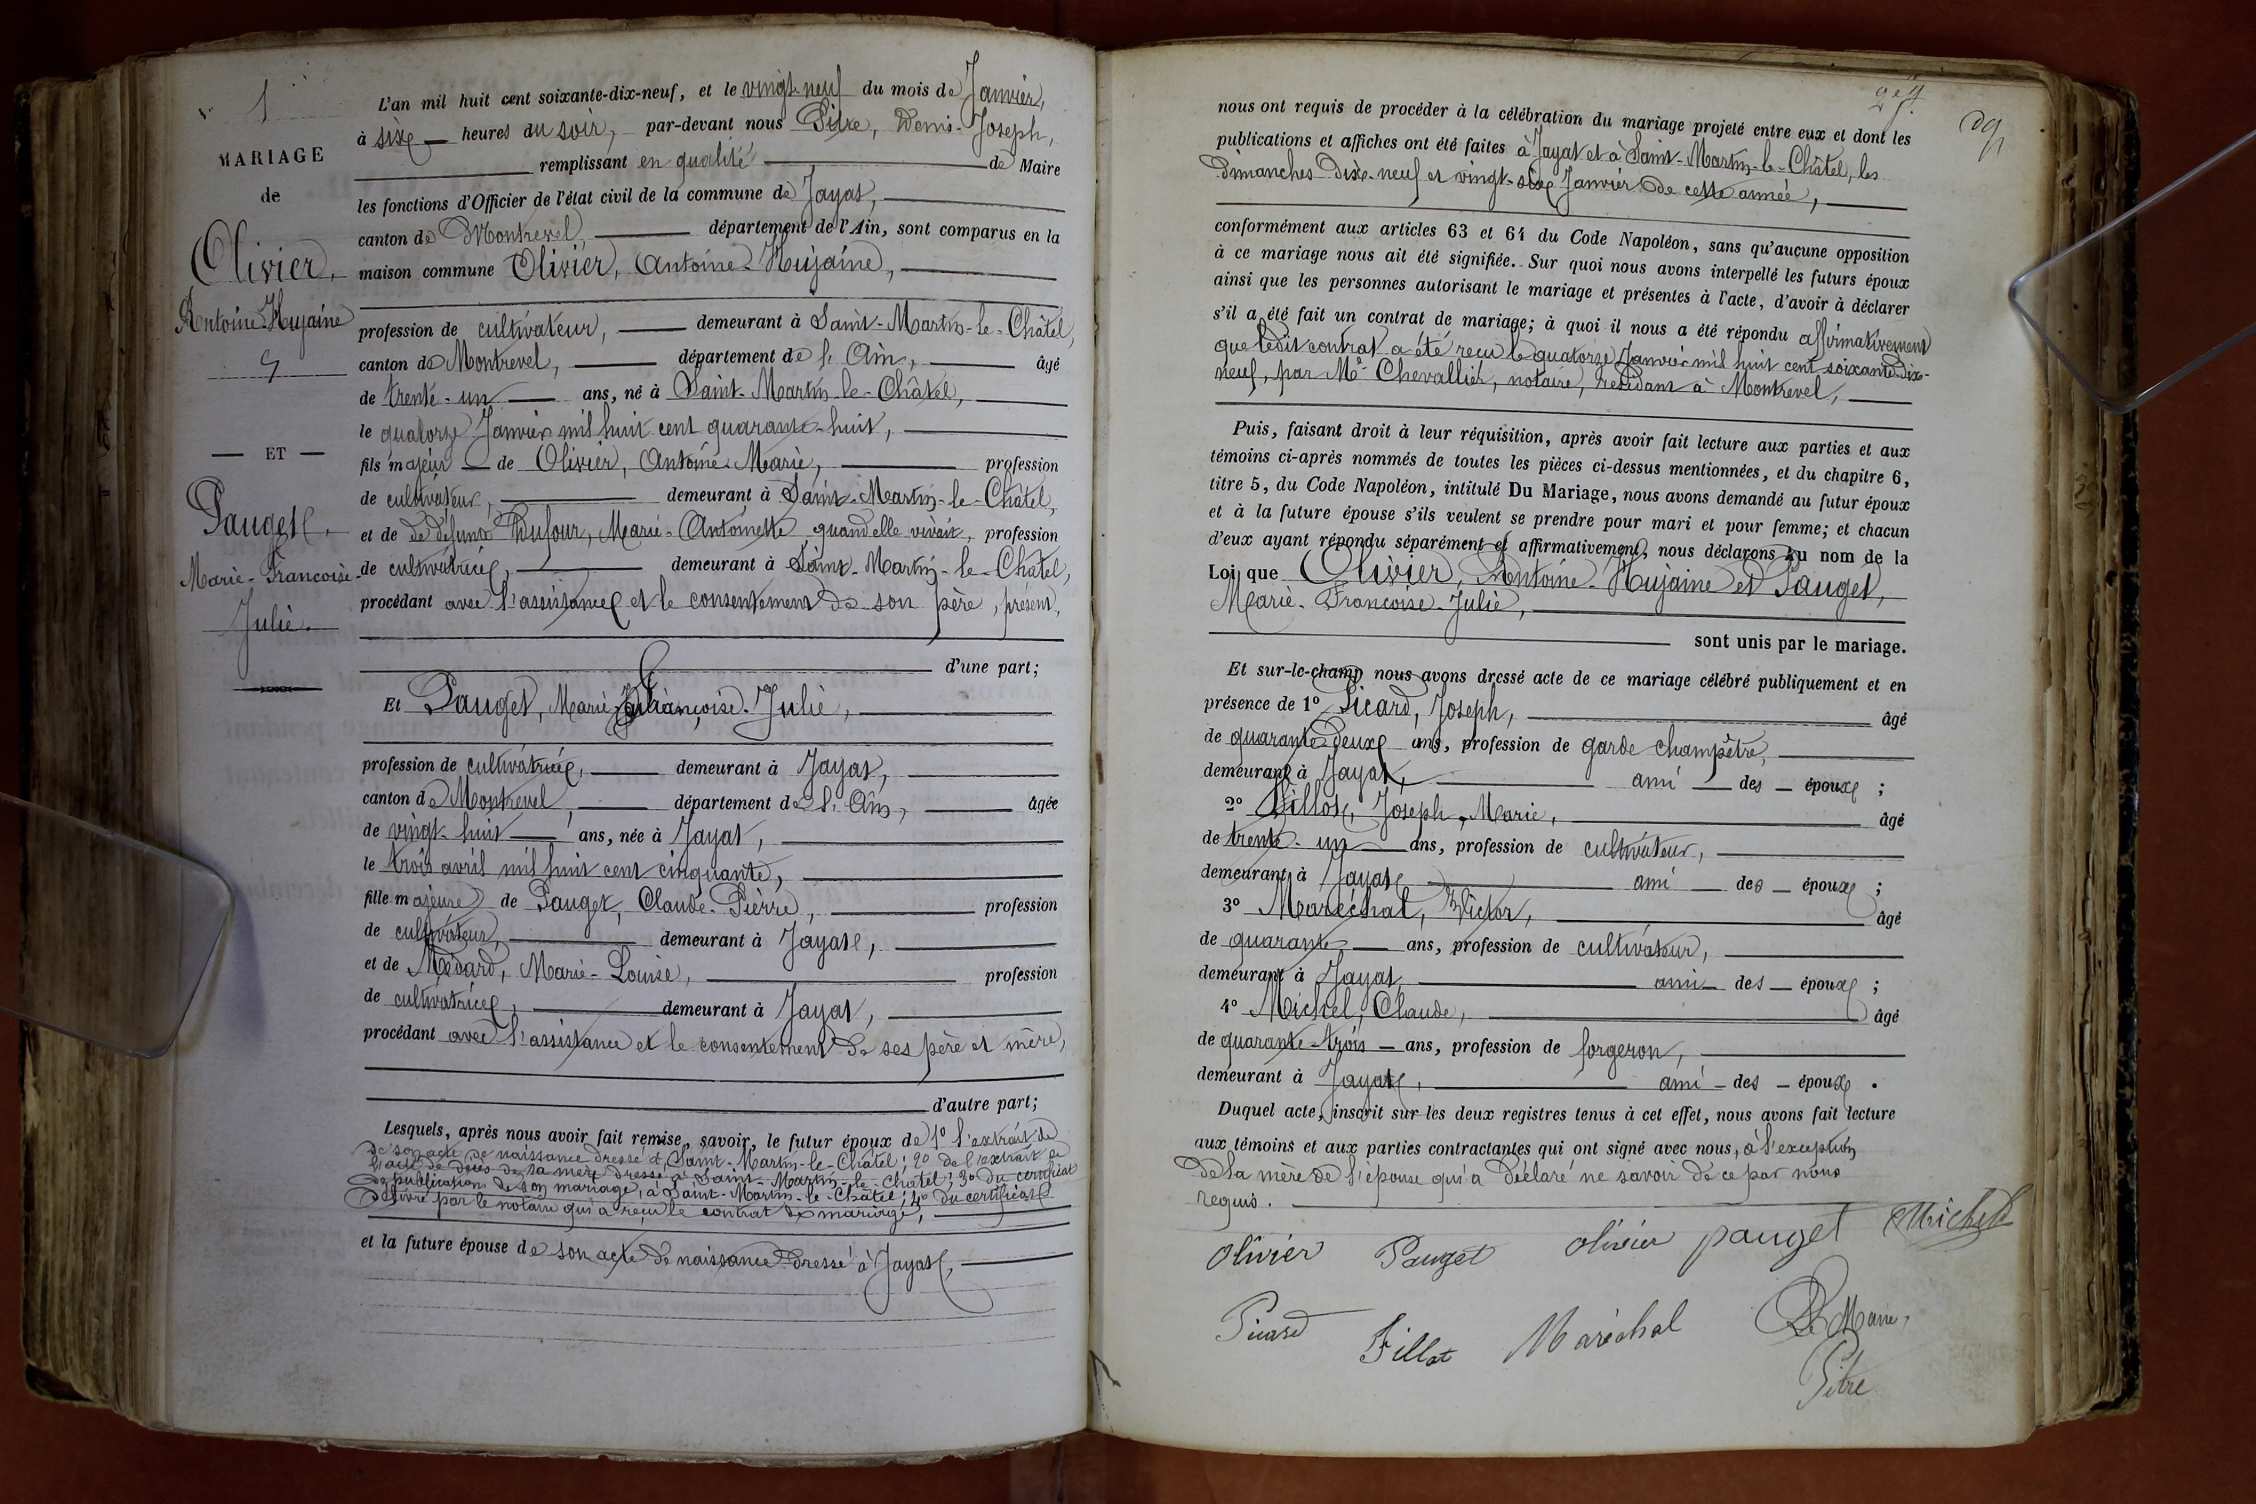 1
MARIAGE
de
Olivier,
Antoine-Hujaine
ET
Pauget,
Marie-Françoise-
Julie.
L'an mil huit cent soixante-dix-neuf, et le vingt-neuf du mois de Janvier,
à six heures du soir, par-devant nous Pitre, Denis-Joseph,
remplissant en qualité de Maire
les fonctions d'Officier de l'état civil de la commune de Jayat,
canton de Montrevel, département de l'Ain, sont comparus en la
maison commune Olivier, Antoine-Hujaine,
profession de cultivateur, demeurant à Saint-Martin-le-Châtel,
canton de Montrevel, département de l'Ain, âgé
de trente-un ans, né à Saint-Martin-le-Châtel,
le quatorze Janvier mil huit cent quarante-huit,
fils majeur de Olivier, Antoine-Marie, profession
de cultivateur, demeurant à Saint-Martin-le-Châtel,
et de de défunte Dufour, Marie-Antoinette quand elle vivait, profession
de cultivatrice, demeurant à Saint-Martin-le-Châtel,
procédant avec l'assistance et le consentement de son père, présent,
d'une part;
Et Pauget, Marie-Françoise-Julie,
profession de cultivatrice, demeurant à Jayat,
canton de Montrevel, département de l'Ain, âgée
de vingt-huit ans, née à Jayat,
le trois avril mil huit cent cinquante,
fille majeure de Pauget, Claude-Pierre, profession
de cultivateur, demeurant à Jayat,
et de Médard, Marie-Louise, profession
de cultivatrice, demeurant à Jayat,
procédant avec l'assistance et le consentement de ses père et mère,
d'autre part;
Lesquels, après nous avoir fait remise, savoir, le futur époux de 1° l'extrait de
de son acte de naissance dressé à Saint-Martin-le-Châtel; 2° de l'extrait de
l'acte de décès de sa mère dressé à Saint-Martin-le-Châtel; 3° du certificat
de publication de son mariage, à Saint-Martin-le-Châtel; 4° du certificat
délivré par le notaire qui a reçu le contrat de mariage,
et la future épouse de son acte de naissance dressé à Jayat,
nous ont requis de procéder à la célébration du mariage projeté entre eux et dont les
publications et affiches ont été faites à Jayat et à Saint-Martin-le-Châtel, les
Dimanches dix-neuf et vingt-six Janvier de cette année,
conformément aux articles 63 et 64 du Code Napoléon, sans qu'aucune opposition
à ce mariage nous ait été signifiée. Sur quoi nous avons interpellé les futurs époux
ainsi que les personnes autorisant le mariage et présentes à l'acte, d'avoir à déclarer
s'il a été fait un contrat de mariage; à quoi il nous a été répondu affirmativement
que ledit contrat a été reçu le quatorze Janvier mil huit cent soixante-dix-
neuf, par Me Chevallier, notaire, résidant à Montrevel,
Puis, faisant droit à leur réquisition, après avoir fait lecture aux parties et aux
témoins ci-après nommés de toutes les pièces ci-dessus mentionnées, et du chapitre 6,
titre 5, du Code Napoléon, intitulé Du Mariage, nous avons demandé au futur époux
et à la future épouse s'ils veulent se prendre pour mari et pour femme; et chacun
d'eux ayant répondu séparément et affirmativement, nous déclarons au nom de la
Loi que Olivier, Antoine-Hujaine et Pauget,
Marie-Françoise-Julie,
sont unis par le mariage.
Et sur-le-champ nous avons dressé acte de ce mariage célébré publiquement et en
présence de 1° Picard, Joseph, âgé
de quarante-deux ans, profession de garde champêtre,
demeurant à Jayat, ami des époux;
2° Fillot, Joseph-Marie, âgé
de trente-un ans, profession de cultivateur,
demeurant à Jayat ami des époux;
3° Maréchal, Victor, âgé
de quarante ans, profession de cultivateur,
demeurant à Jayat ami des époux;
4° Michel, Claude, âgé
de quarante-trois ans, profession de forgeron,
demeurant à Jayat, ami des époux.
Duquel acte, inscrit sur les deux registres tenus à cet effet, nous avons fait lecture
aux témoins et aux parties contractantes qui ont signé avec nous, à l'exception
de la mère de l'épouse qui a déclaré ne savoir de ce par nous
requis.
Olivier Pauget Olivier pauget Michel
Picard Fillot Maréchal Le Maire,
Pitre